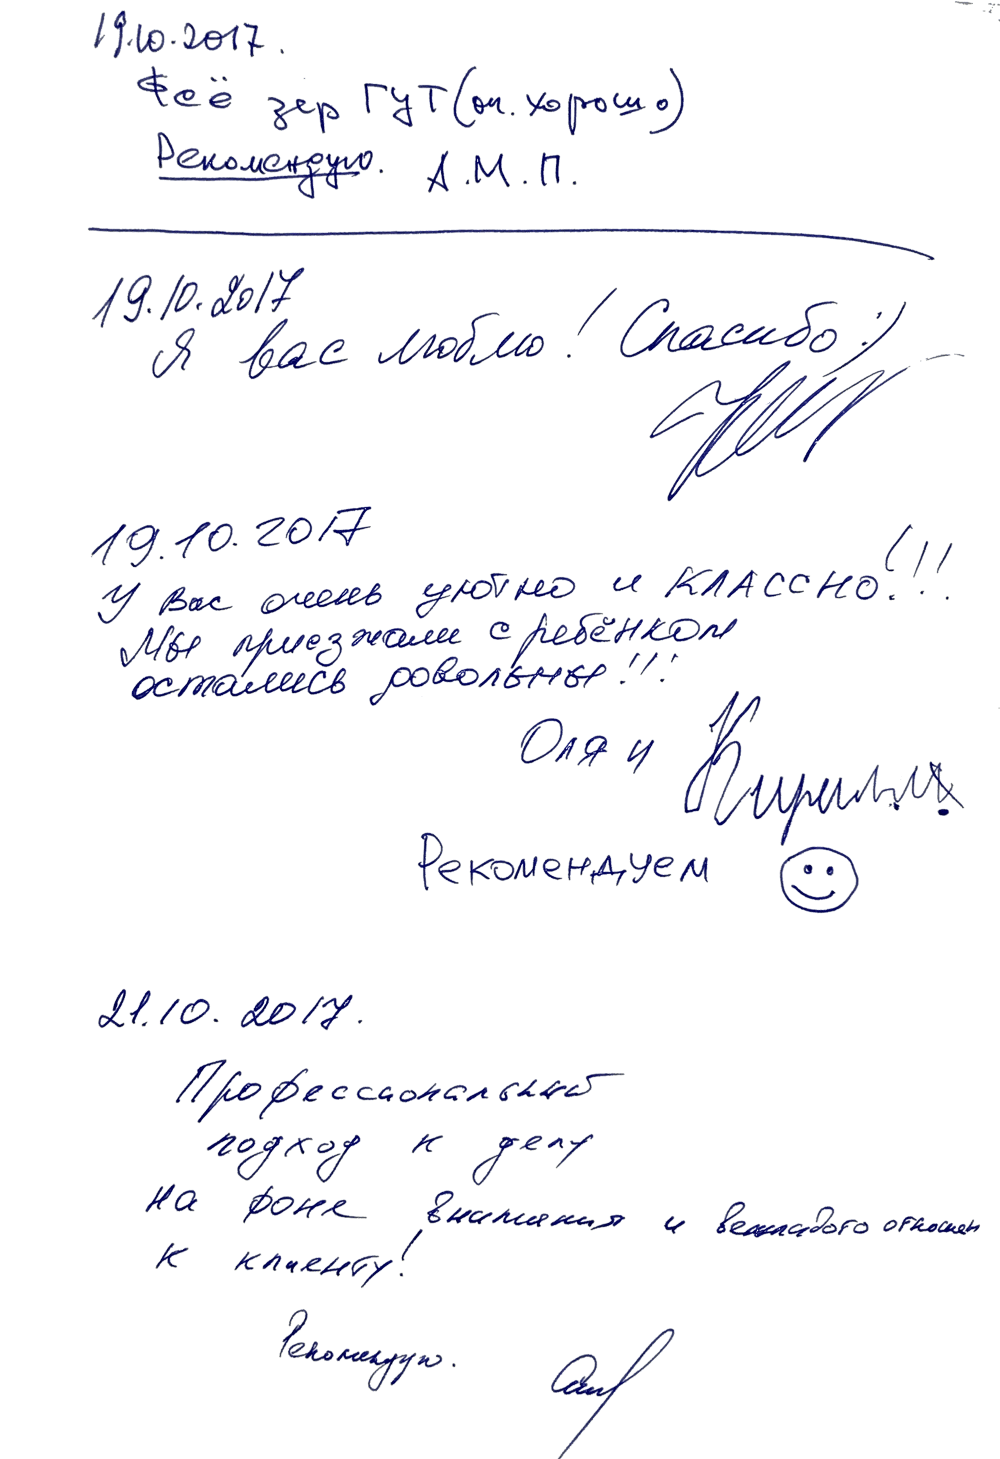 19.10.2017.
Фсё зер ГУТ (оч. хорошо)
Рекомендую. А.М.П.
19.10.2017
Я вас люблю! Спасибо :)
19.10.2017
У Вас очень уютно и КЛАССНО!!!
Мы приезжали с ребёнком
остались довольны!!!
Оля и Кирилл
Рекомендуем
21.10.2017.
Профессиональный
подход к делу
на фоне внимания и отношен
к клиенту!
Рекомендую.